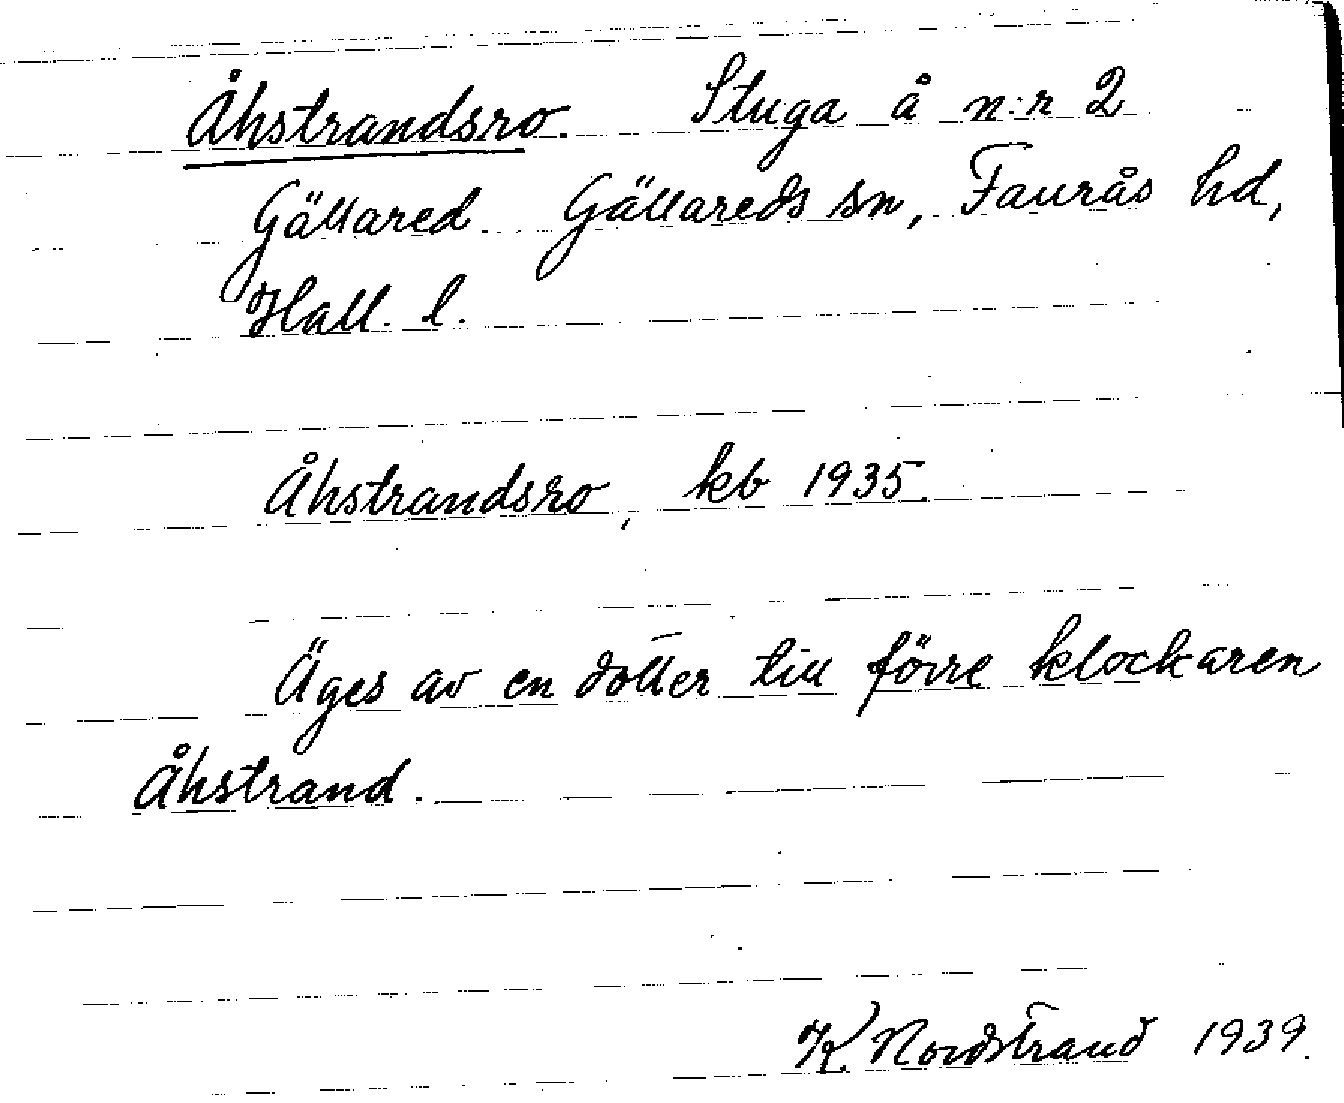 Åhstrandsro. Stuga å n:r 2
Gällared. Gällareds sn, Faurås hd,
Hall. l.
Åhstrandsro, kb 1935.
Äges av en dotter till förre klockaren
Åhstrand.
K. Nordstrand 1939.